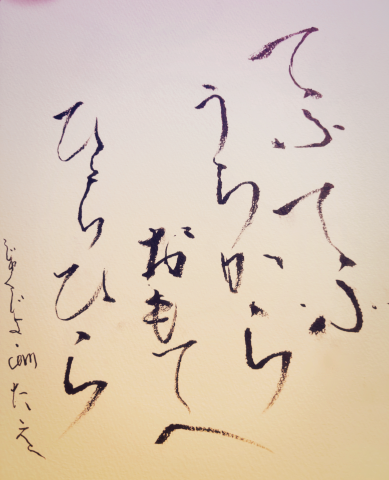 てふてふ
うらから
おもてへ
ひらひら
.com たえ